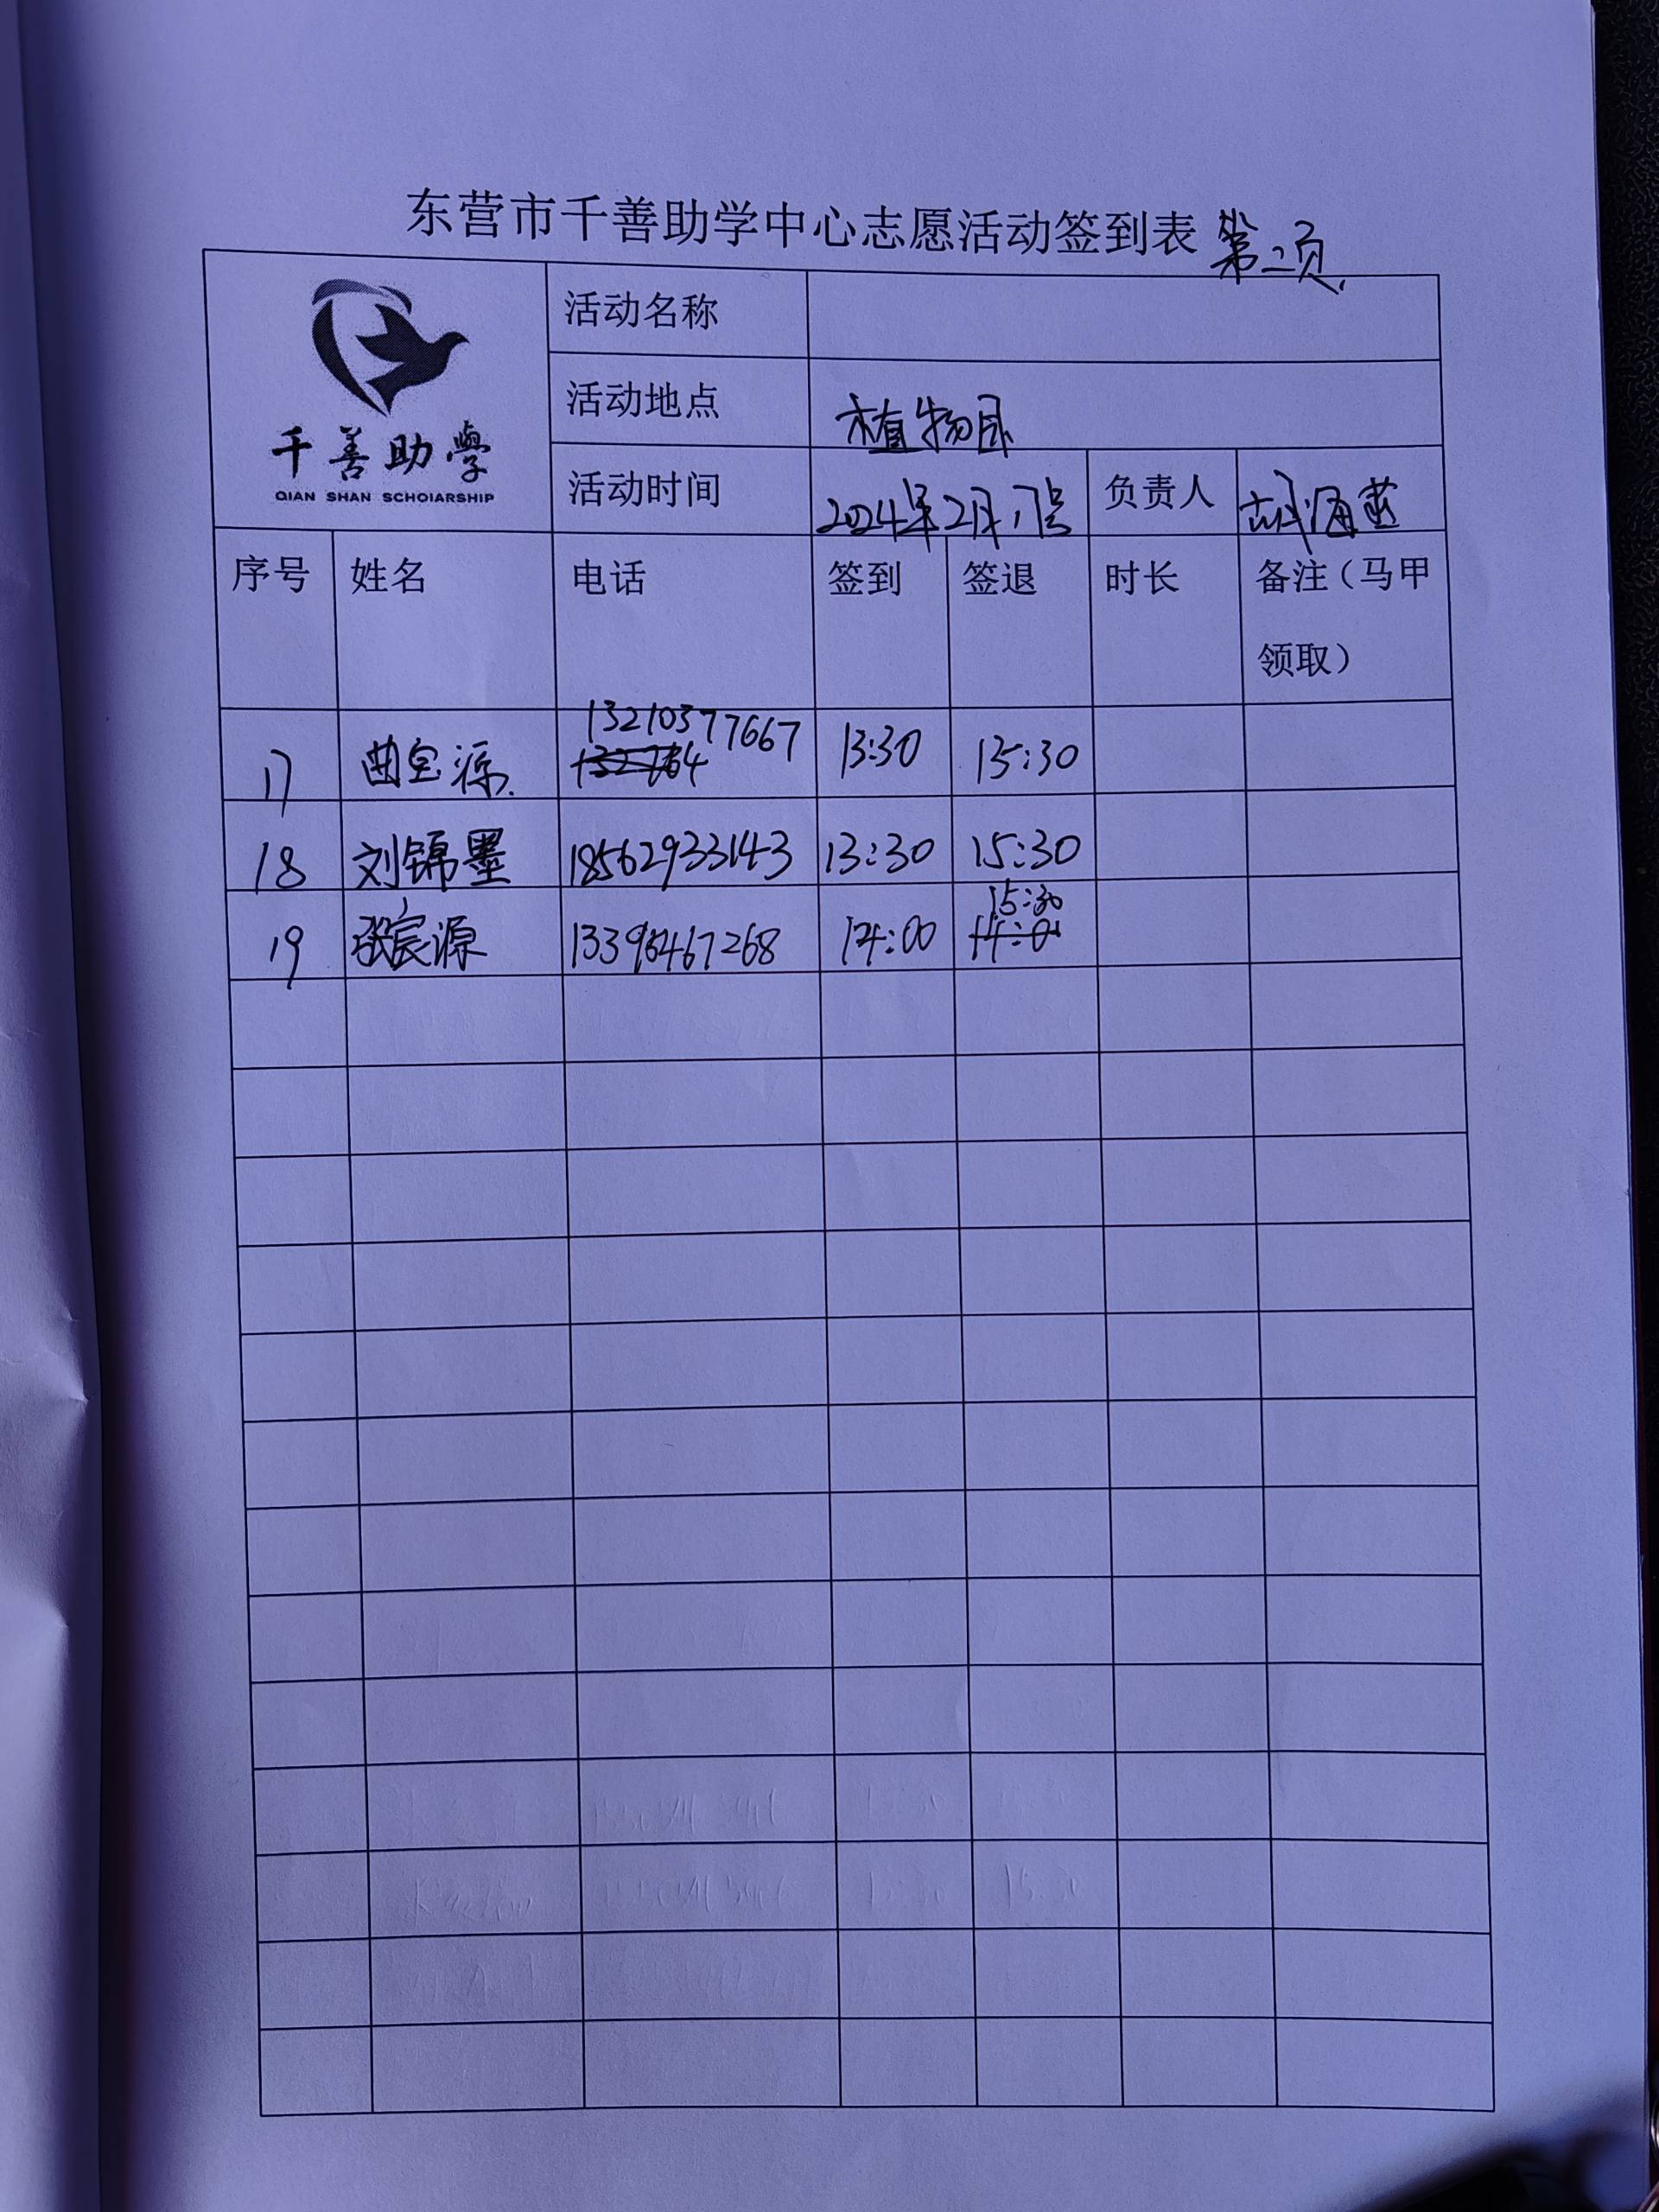 东营市千善助学中心志愿活动签到表 第二页
千善助學
QIAN SHAN SCHOIARSHIP
活动名称
活动地点 植物园
活动时间 2024年2月17号 负责人 胡海燕
序号 姓名 电话 签到 签退 时长 备注（马甲
领取）
13210377667
17 曲宝源 13:30 15:30
18 刘锦墨 18562933143 13:30 15:30
15:30
19 张宸源 14:00 14:01